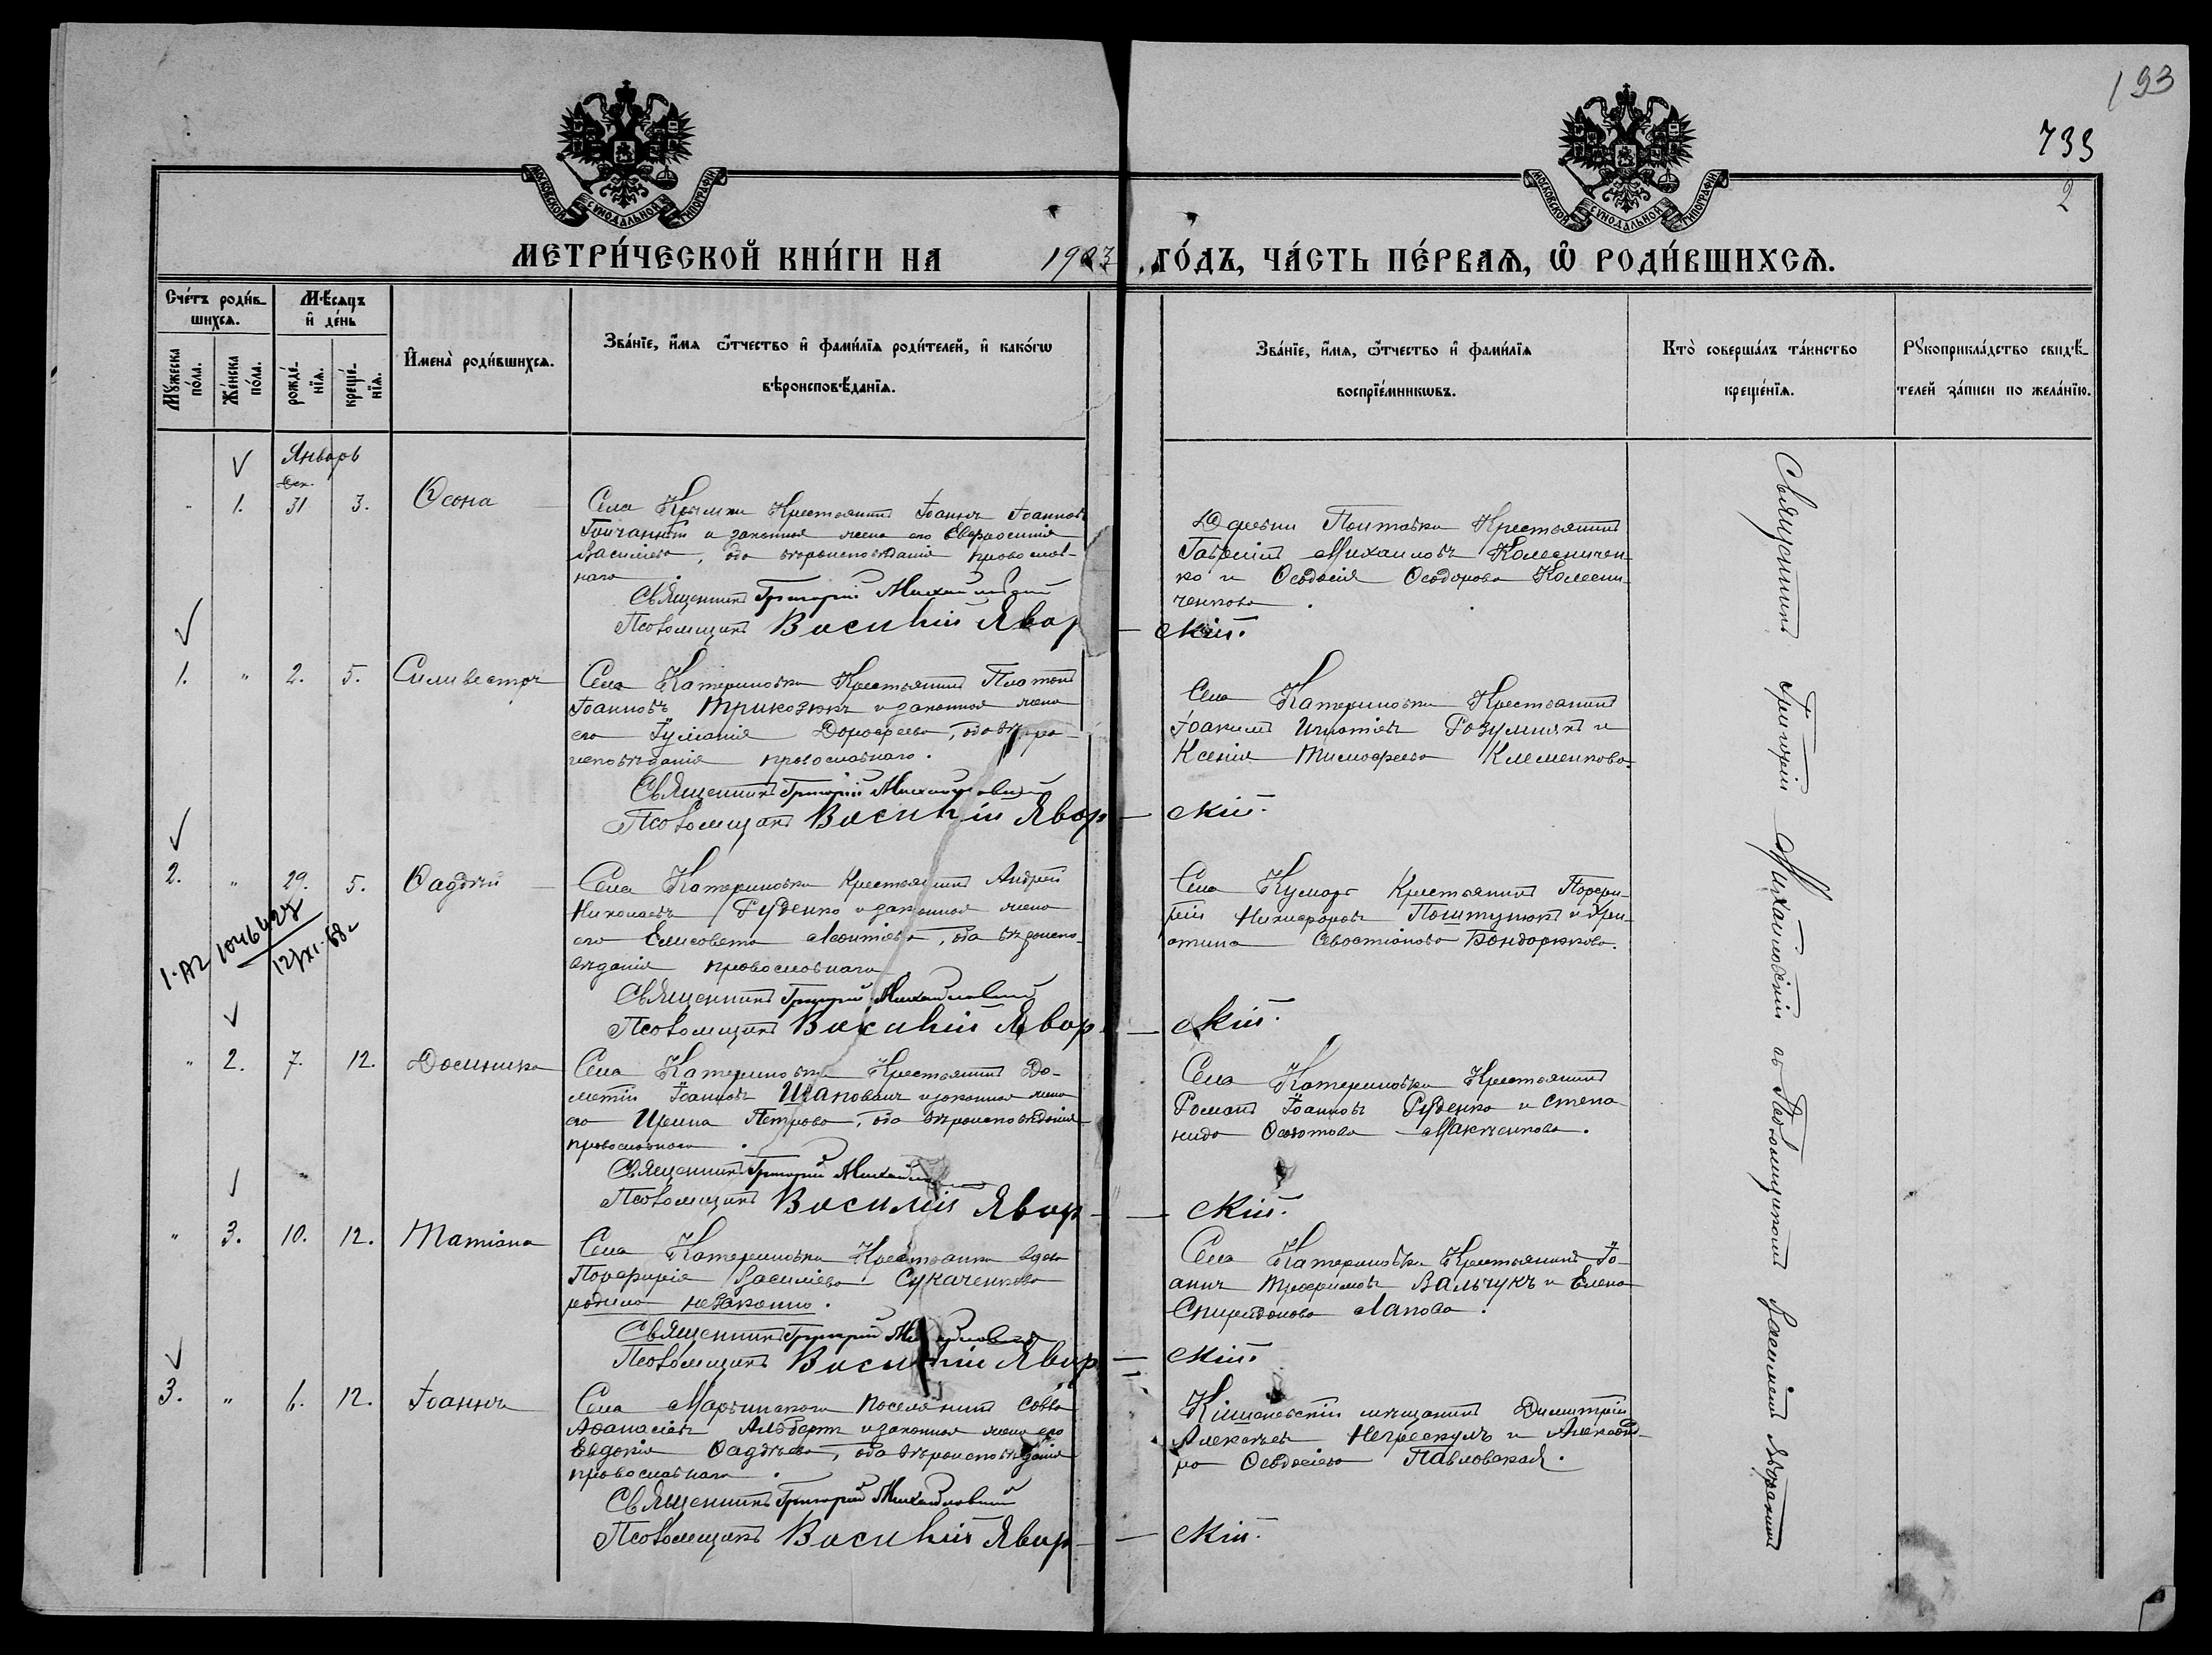 193
733
2
МОСКОВСКОЙ СѴНОДАЛЬНОЙ ТИПОГРАФІИ
МОСКОВСКОЙ СѴНОДАЛЬНОЙ ТИПОГРАФІИ
МЕТРИ́ЧЕСКОЙ КНИ́ГИ НА 1903 ГО́ДЪ, ЧА́СТЬ ПЕ́РВАѦ, Ѡ҆ РОДИ́ВШИХСѦ.
Сче́тъ роди́в-
шихсѧ.
Мѣ́сяцъ
и҆ де́нь
Мꙋ́жеска
по́ла.
Же́нска
по́ла.
рожде́-
нїѧ.
креще́-
нїѧ.
И҆мена̀ роди́вшихсѧ.
Зва́нїе, и҆́мѧ ѻ҆́тчество и҆ фами́лїѧ роди́телей, и҆ како́гѡ
вѣроисповѣ́данїѧ.
Зва́нїе, и҆́мѧ, ѻ҆́тчество и҆ фами́лїѧ
воспрїе́мникѡвъ.
Кто̀ соверша́лъ та́инство
креще́нїѧ.
Рꙋкоприкла́дство свидѣ́-
телей за́писи по жела́нїю.
Январь
Дек.
1. 31 3. Ѳеона
Села Крымки Крестьянинъ Іоаннъ Іоанновъ
и законная жена его Евфросинія
Василіева, оба вѣроисповѣданія православ-
наго.
Священникъ Григорій Михайловскій
Псаломщикъ Василій Явор-
Деревни Полтавки Крестьянинъ
Гавріилъ Михаиловъ Колесничен-
ко и Ѳеодосія Ѳеодорова Колесни-
ченкова.
скій.
1. " 2. 5. Силивестръ
Села Катериновки Крестьянинъ Платонъ
Іоанновъ Трикозюкъ и законная жена
его Іуліанія Дороѳеева, оба вѣро-
исповѣданія православнаго.
Священникъ Григорій Михайловскій
Псаломщикъ Василій Явор-
Села Катериновки Крестьянинъ
Іоакимъ Игнатіевъ Розумнякъ и
Ксенія Тимофеева Клеменкова.
скій.
2. " 29. 5. Ѳаддѣй
Села Катериновки Крестьянинъ Андрей
Николаевъ Руденко и законная жена
его Елисавета Леонтіева, оба вѣроиспо-
вѣданія православнаго
Священникъ Григорій Михайловскій
Псаломщикъ Василій Явор-
Села Кумаръ Крестьянинъ Порфи-
рій Никифоровъ и Хри-
стина Севастіанова Бондарюкова.
скій.
1-АГ 1046427
12/XI-68г
" 2. 7. 12. Домника
Села Катериновки Крестьянинъ До-
метій Іоанновъ Шаповалъ и законная жена
его Ирина Петрова, оба вѣроисповѣданія
православнаго.
Священникъ Григорій Михайловскій
Псаломщикъ Василій Явор-
Села Катериновки Крестьянинъ
Романъ Іоанновъ Руденко и Степа-
нида Макѣенкова.
скій.
" 3. 10. 12. Татіана
Села Катериновки Крестьянка вдова
Порфирія Василіева Сукаченкова
родила незаконно.
Священникъ Григорій Михайловскій
Псаломщикъ Василій Явор-
Села Катериновки Крестьянинъ Іо-
аннъ Трофимовъ Вальчукъ и Елена
Спиридонова Лапова.
скій.
3. " 6. 12. Іоаннъ
Села Марьинскаго поселянинъ Савва
Аѳанасіевъ Альбертъ и законная жена его
Евдокія Ѳаддѣева, оба вѣроисповѣданія
православнаго.
Священникъ Григорій Михайловскій
Псаломщикъ Василій Явор-
Кишеневскій мѣщанинъ Димитрій
Алексѣевъ Негрескулъ и Александ-
ра Ѳеодосіева Павловская.
скій.
Священникъ Григорій Михайловскій съ Псаломщикомъ Василіемъ Яворскимъ